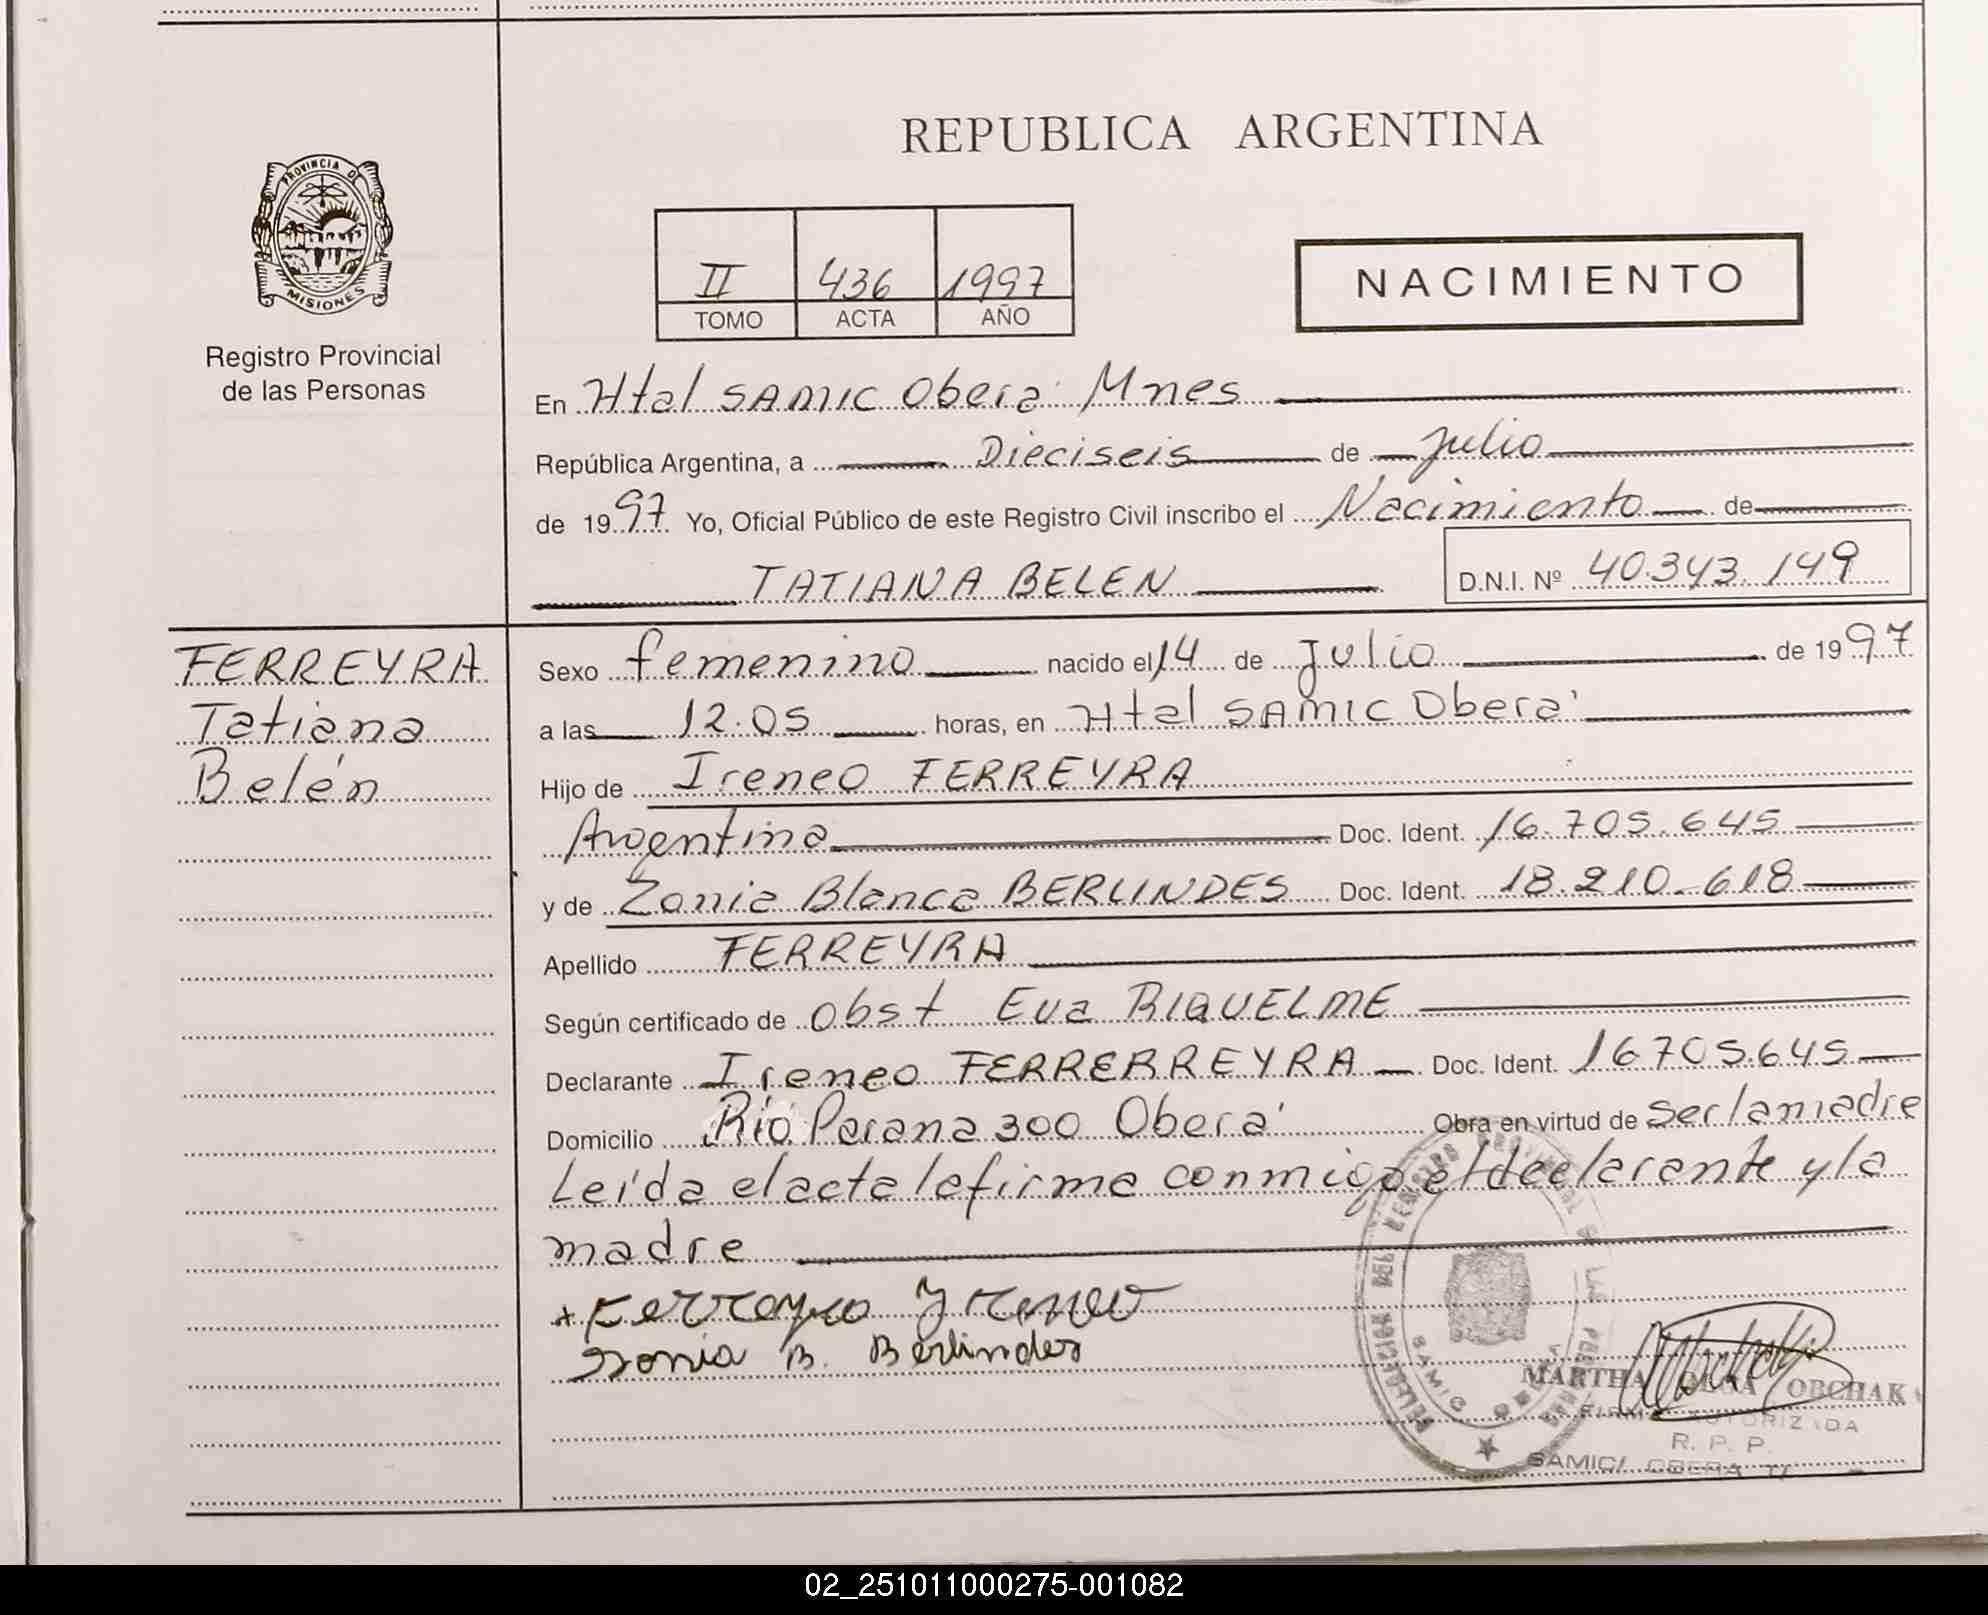 REPUBLICA ARGENTINA
PROVINCIA DE
MISIONES
Registro Provincial
de las Personas
II 436 1997
TOMO ACTA AÑO
NACIMIENTO
En Htal SAMIC Oberá Mnes
República Argentina, a Dieciseis de Julio
de 1997 Yo, Oficial Público de este Registro Civil inscribo el Nacimiento de
TATIANA BELEN D.N.I. Nº 40.343.149
FERREYRA
Tatiana
Belén
Sexo femenino nacido el 14 de Julio de 1997
a las 12.05 horas, en Htal SAMIC Oberá
Hijo de Ireneo FERREYRA
Argentina Doc. Ident. 16.705.645
y de Zonia Blanca BERLINDES Doc. Ident. 18.210.618
Apellido FERREYRA
Según certificado de obst Eva RIQUELME
Declarante Ireneo FERRERREYRA Doc. Ident. 16705.645
Domicilio Río Parana 300 Oberá Obra en virtud de ser la madre
Leída el acta la firma conmigo el declarante y la
madre
x Ferreyra Yreneo
Sonia B. Berlindes
DELEGACION DEL REGISTRO PROVINCIAL DE LAS PERSONAS
SAMIC OBERA
MARTHA OLGA OBCHAK
FIRMA AUTORIZADA
R. P. P.
SAMIC/ OBERA
02_251011000275-001082